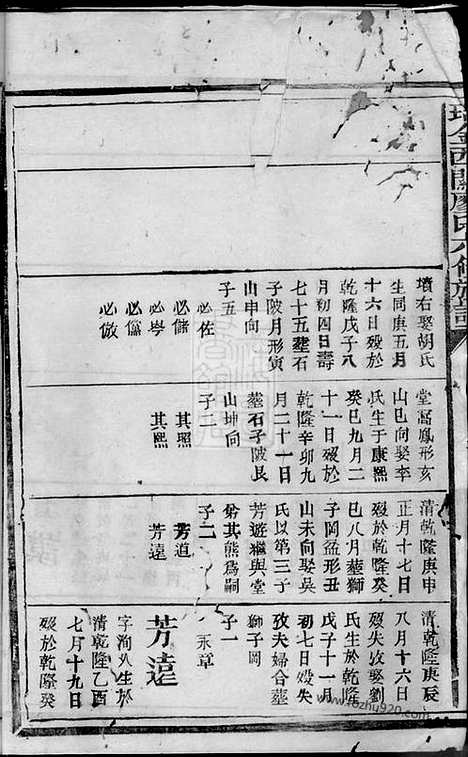 瑞金西關廖氏六修族譜
墳右娶胡氏
生同庚五月
十六日歿於
乾隆戊子八
月初四日壽
七十五塟石
子陂月形寅
山申向
子五
必佐
必儲
必岑
必儻
必倣
堂窩鳳形亥
山巳向娶李
氏生于康熙
癸巳九月二
十一日歿於
乾隆辛卯九
月二十一日
塟石子陂艮
山坤向
子二
其照
其熙
清乾隆庚申
正月十七日
歿於乾隆癸
巳八月塟獅
子岡盆形丑
山未向娶吳
氏以第三子
芳遊繼與堂
弟其熊爲嗣
子二
芳道
芳遠
清乾隆庚辰
八月十六日
歿失攷娶劉
氏生於乾隆
戊子十一月
初七日歿失
攷夫婦合塟
獅子岡
子一
永章
芳遠
字洵久生於
清乾隆乙酉
七月十九日
歿於乾隆癸
www.fozhu920.com